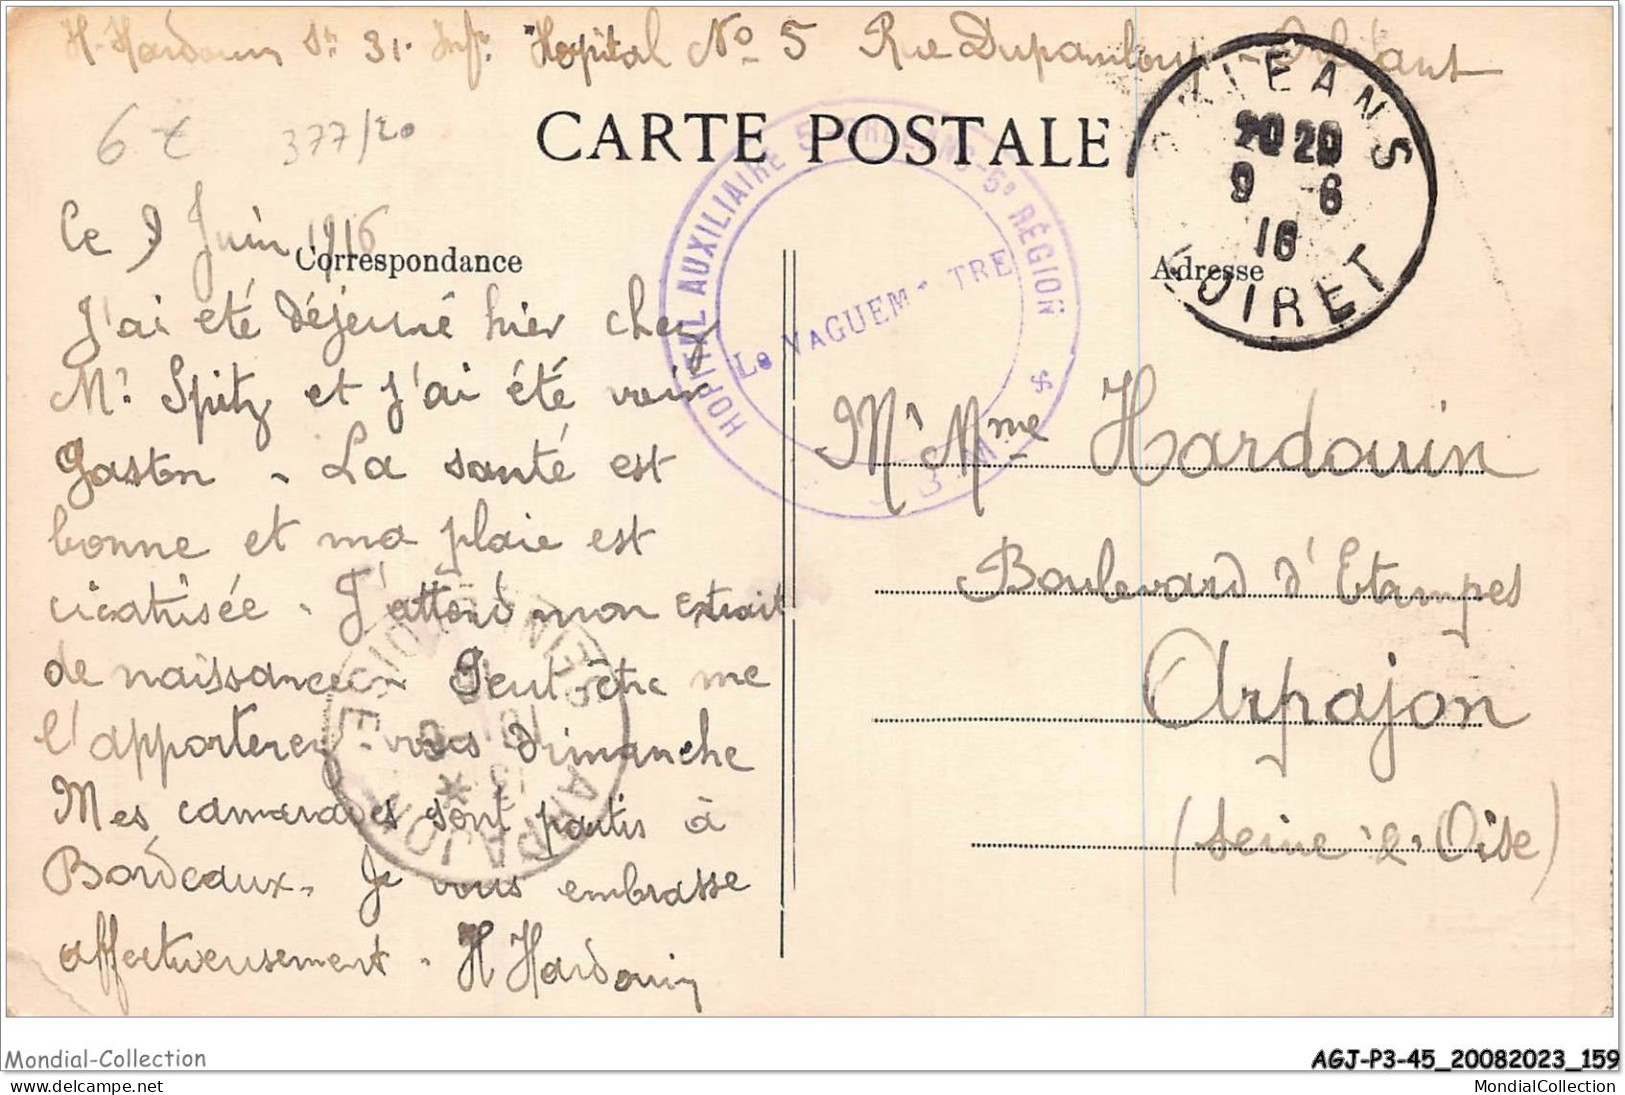 H. Hardouin St 31. Infie Hopital No 5 Rue Dupanloup - Orléans
6 € 377/20
CARTE POSTALE
ORLEANS
20 20
9 6
16
LOIRET
HOPITAL AUXILIAIRE 5 ORLEANS - 5e RÉGION
Le VAGUEMESTRE
S.B.M.
Correspondance
Adresse
Ce 9 Juin 1916
J'ai été déjeuné hier chez
Mr Spitz et j'ai été voir
Gaston. La santé est
bonne et ma plaie est
cicatrisée. J'attend mon extrait
de naissance. Peut-être me
l'apporterez-vous dimanche
Mes camarades sont partis à
Bordeaux. Je vous embrasse
affectueusement. H Hardouin
ARPAJON
SEINE-ET-OISE
Mr Mme Hardouin
Boulevard d'Etampes
Arpajon
(Seine & Oise)
Mondial-Collection
AGJ-P3-45_20082023_159
delcampe.net
MondialCollection